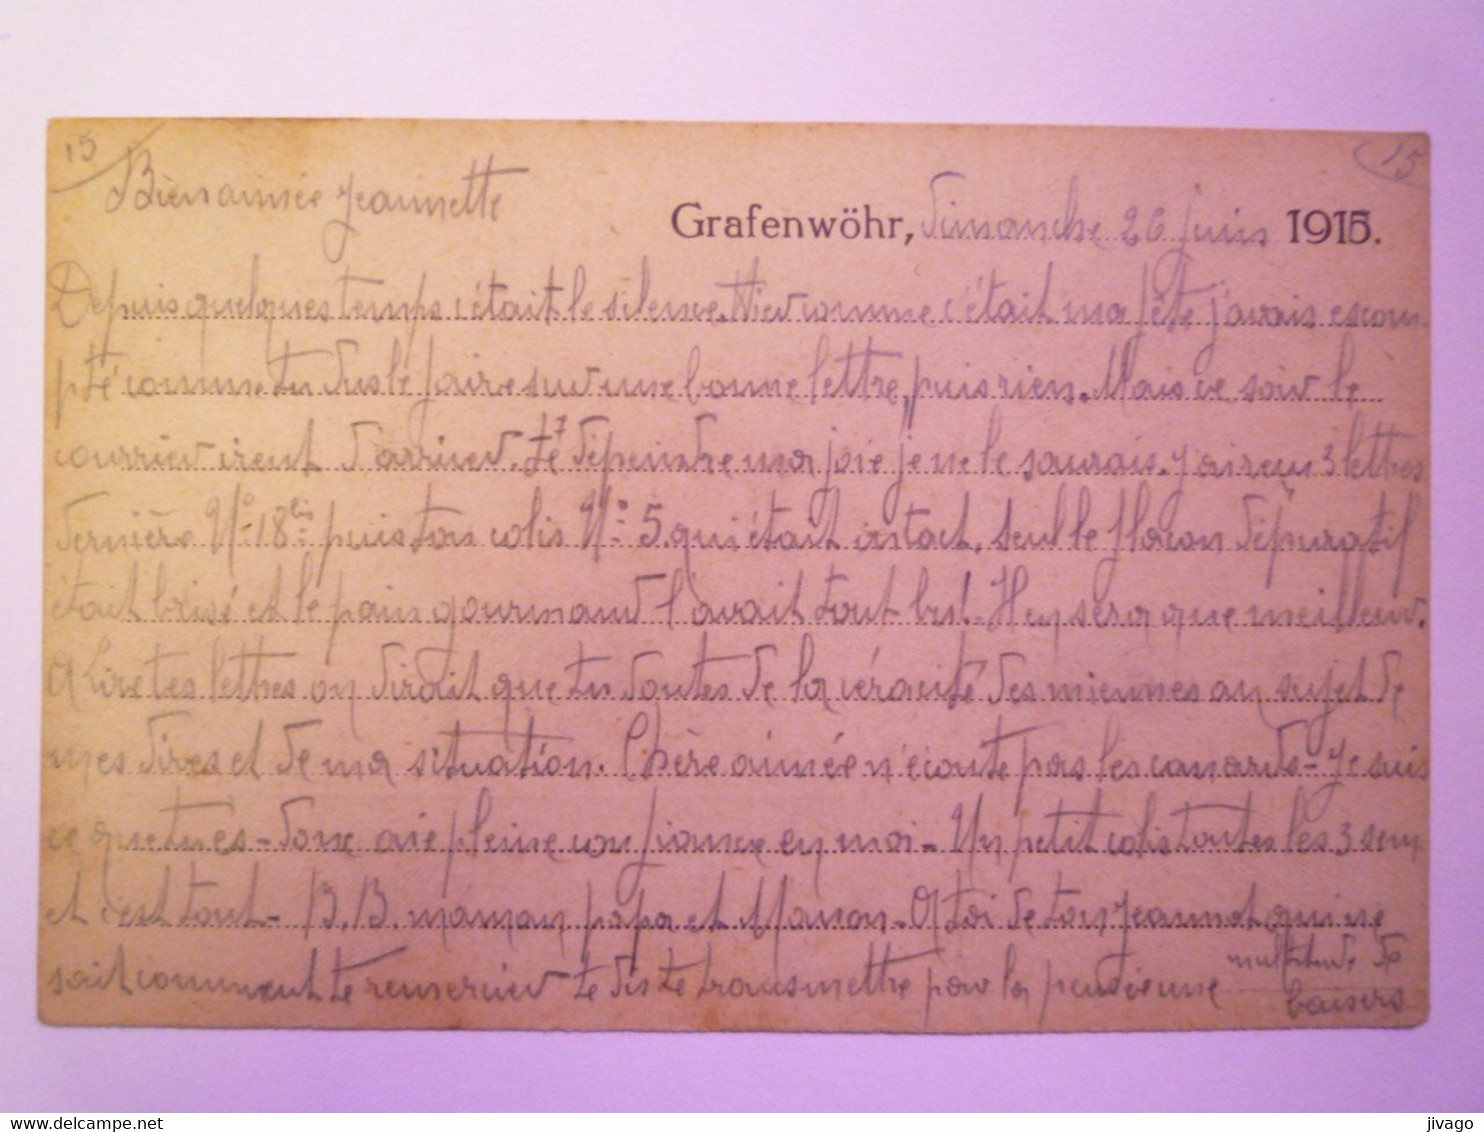 15
15
Bien aimée Jeannette
Grafenwöhr, Dimanche 26 juin 1915.
Depuis quelques temps c'était le silence. Hier comme c'était ma fête j'avais escom
pté comme tu dus le faire sur une bonne lettre, puis rien. Mais ce soir le
courrier vient d'arriver. Te dépeindre ma joie je ne le saurais. J'ai reçu 3 lettres
dernière N° 18 bis puis ton colis N° 5. qui était intact, seul le flacon dépuratif
était brisé et le pain gourmand l'avait tout bu! Il en sera que meilleur.
A lire tes lettres on dirait que tu doutes de la véracité des miennes au sujet de
mes dires et de ma situation. Chère aimée n'écoute pas les canards - Je suis
ce que tu es - donc aie pleine confiance en moi - Un petit colis toutes les 3 sem
et c'est tout - B. B. maman papa et Manon - A toi de ton Jeannot qui ne
sait comment te remercier te dis te transmettre par la pensée une multitude de
baisers
jivago